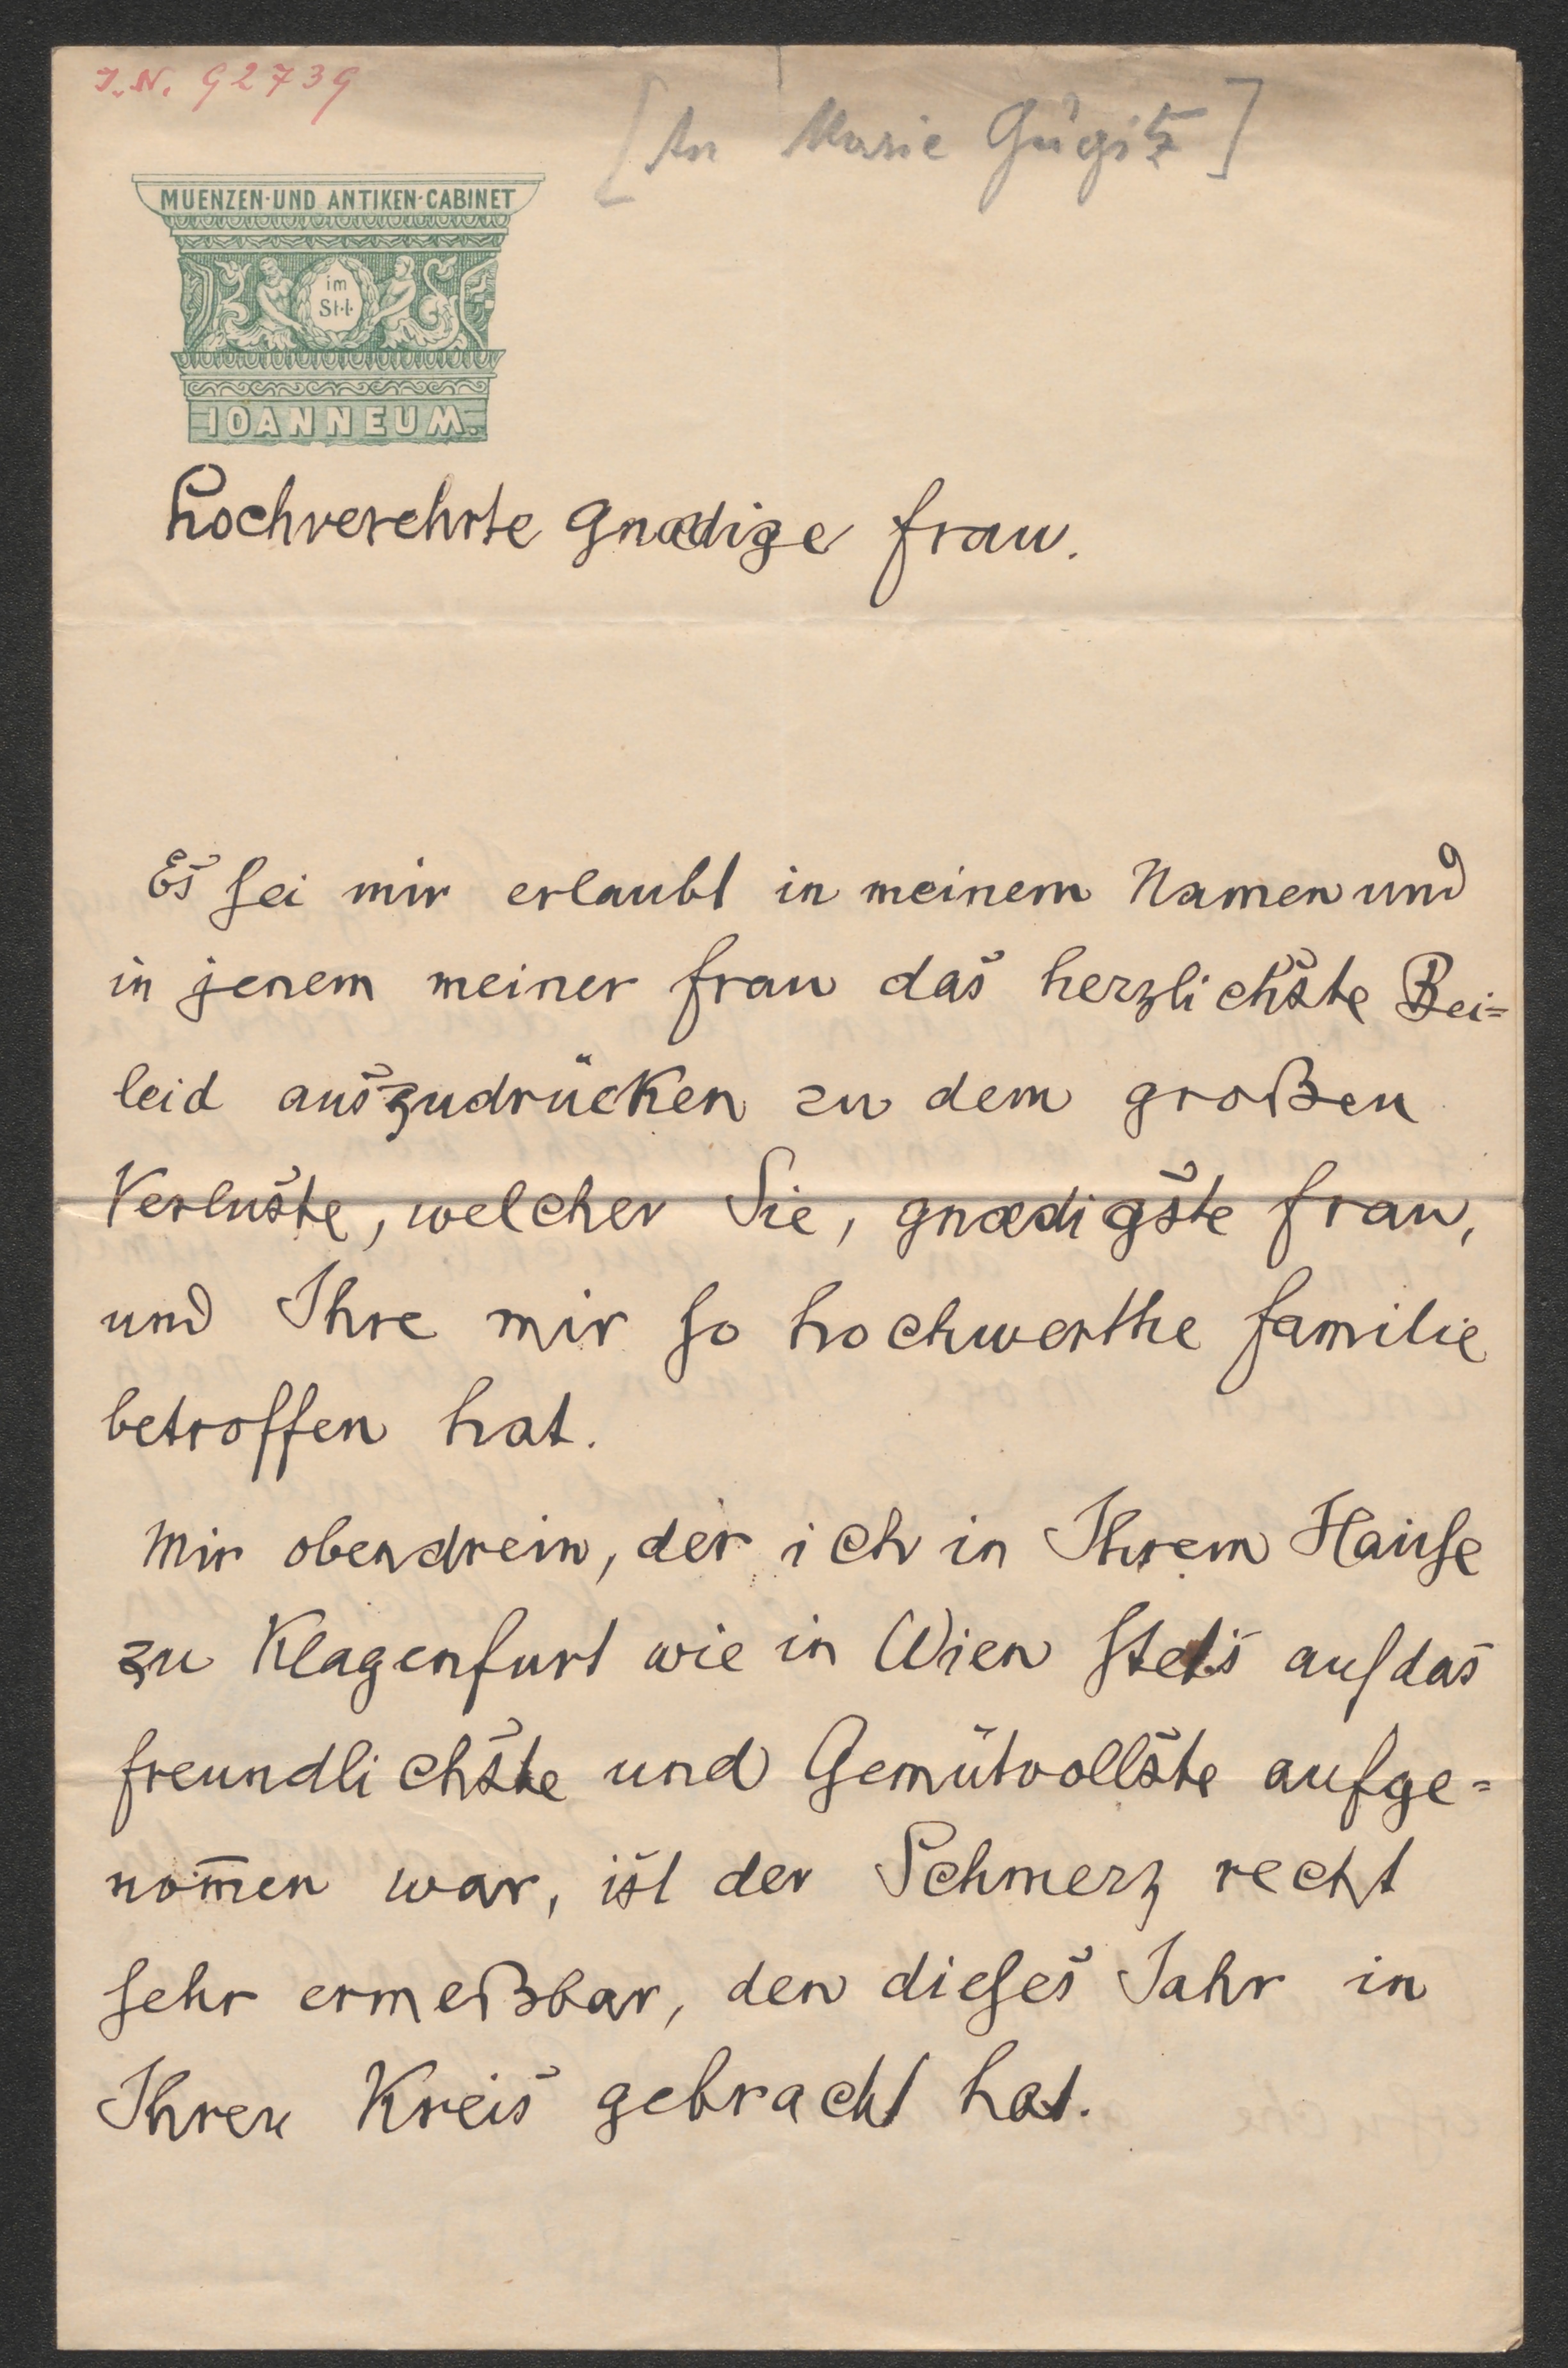 I.N. 92739
[An Marie Gugitz]
MUENZEN-UND ANTIKEN-CABINET
im
St. l.
IOANNEUM.
Hochverehrte Gnædige Frau.
Es sei mir erlaubt in meinem Namen und
in jenem meiner Frau das herzlichste Bei=
leid auszudrücken zu dem großen
Verluste, welcher Sie, gnædigste Frau,
und Ihre mir so hochwerthe Familie
betroffen hat.
Mir obendrein, der ich in Ihrem Hause
zu Klagenfurt wie in Wien stets auf das
freundlichste und Gemütvollste aufge=
nom̄en war, ist der Schmerz recht
sehr ermeßbar, den dieses Jahr in
Ihren Kreis gebracht hat.